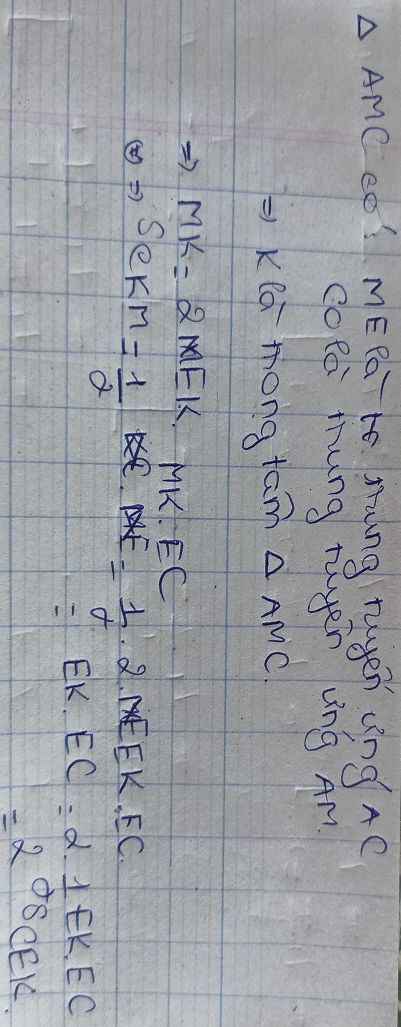 Δ AMC có: ME là trung tuyến ứng AC
CO là trung tuyến ứng AM.
⇒ K là trong tâm Δ AMC.
⇒ MK = 2 EK.
MK. EC
⇒ SCKM = 1/2 = 1/2 . 2. EK. EC.
= EK. EC = 2. 1/2 EK. EC
= 2 SCEK.